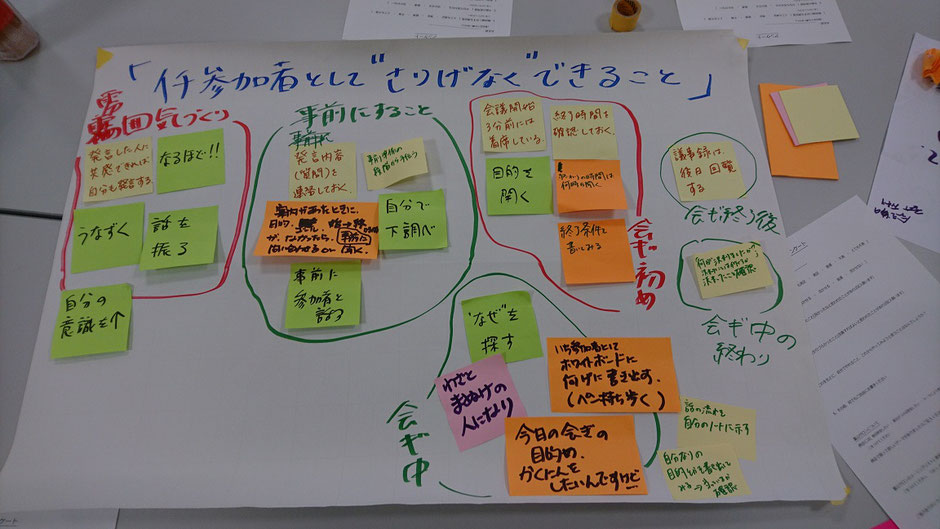 「イチ参加者として"さりげなく"できること」
雰囲気づくり
発言した人に
共発できれば
自分も発言する。
なるほど!!
うなずく
話を
振る
自分の
意識を↑
事前にすること
発言内容
(質問)を
準備しておく。
案内があったときに、
目的、
ゴール、
がなかったら、事前に
問い合わせる 聞く。
自分で
下調べ
事前に
参加者と
話す
会議開始
3分前には
着席している。
終了時間を
確認しておく。
目的を
聞く
終わりの時間は
何時か聞く
終了条件を
書いてみる
会ギ初め
議事録は、
後日回覧
する
会ぎ終了後
会ギ中の
終わり
"なぜ"を
探す
わざと
まぬけの
人になり
いち参加者として
ホワイトボードに
何げに書き出す.
(ペン持ち歩く)
今日の会ぎの
目的め.
かくにんを
したいんですけど
話の流れを
自分のノートに示す
自分なりの
会ギ中